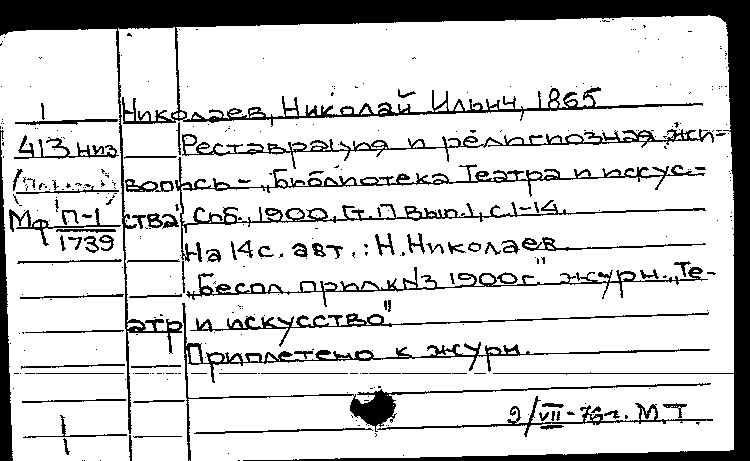 1 Николаев, Николай Ильич, 1865
413 низ Реставрация и религиозная жи-
вопись – „Библиотека Театра и искус-
Мф П-1 ства", Спб., 1900, Ст. П Вып.1, с.1-14.
1739 На 14 с. авт.: Н.Николаев.
„Беспл. прил. к №3 1900г." журн. „Те-
атр и искусство".
Приплетено к журн.
9/VII-76г. М.Т.